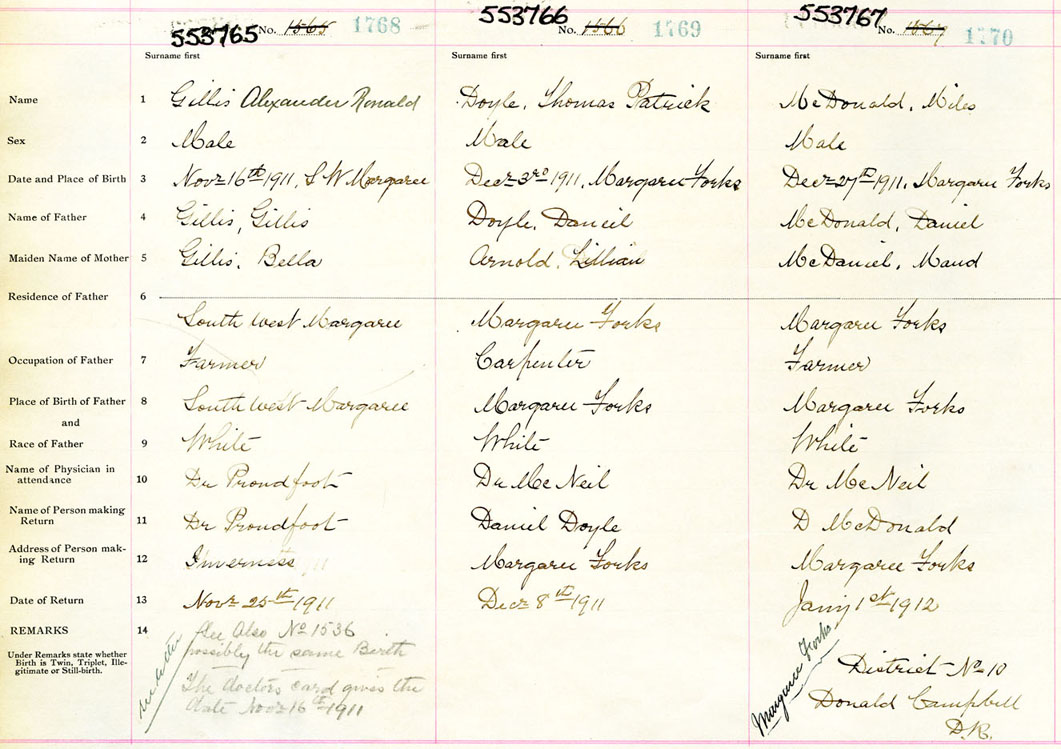 553765 No. 1565 1768 553766 No. 1566 1769 553767 No. 1567 1770
Surname first Surname first Surname first
Name 1 Gillis Alexander Ronald Doyle, Thomas Patrick McDonald, Miles
Sex 2 Male Male Male
Date and Place of Birth 3 Novr 16th 1911, S W Margaree Decr 3rd 1911, Margaree Forks Decr 27th 1911, Margaree Forks
Name of Father 4 Gillis, Gillis Doyle, Daneil McDonald, Daniel
Maiden Name of Mother 5 Gillis, Bella Arnold, Lillian McDaniel, Maud
Residence of Father 6
South West Margaree Margaree Forks Margaree Forks
Occupation of Father 7 Farmer Carpenter Farmer
Place of Birth of Father 8 South West Margaree Margaree Forks Margaree Forks
and
Race of Father 9 White White White
Name of Physician in
attendance 10 Dr Proudfoot Dr McNeil Dr McNeil
Name of Person making
Return 11 Dr Proudfoot Daniel Doyle D McDonald
Address of Person mak-
ing Return 12 Inverness Margaree Forks Margaree Forks
Date of Return 13 Novr 25th 1911 Decr 8th 1911 Jany 1st 1912
REMARKS 14 See Also No 1536
possibly the same Birth
Under Remarks state whether
Birth is Twin, Triplet, Ille-
gitimate or Still-birth.
The doctors card gives the
date Novr 16th 1911
Margaree Forks
District No 10
Donald Campbell
D.R.